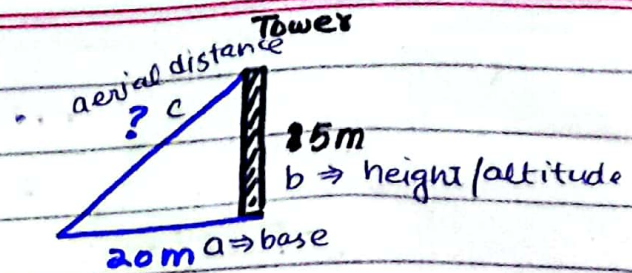 Tower
aerial distance
? c
15m
b ⇒ height/altitude
20m a⇒base